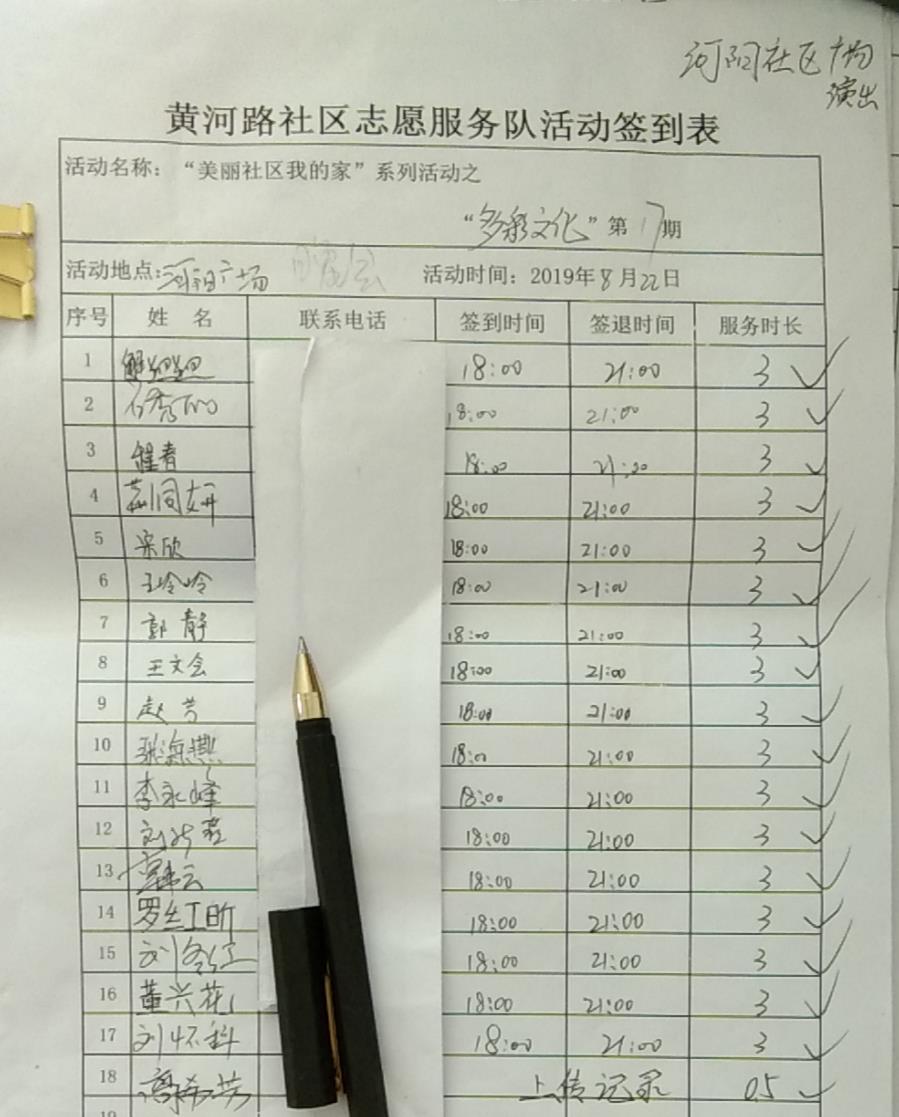 河阳社区广场
演出
黄河路社区志愿服务队活动签到表
活动名称：“美丽社区我的家”系列活动之
“多彩文化”第17期
活动地点:河阳广场 晚会 活动时间：2019年8月22日
序号 姓名 联系电话 签到时间 签退时间 服务时长
1 18:00 21:00 3 ✓
2 18:00 21:00 3 ✓
3 程青 18:00 21:00 3 ✓
4 18:00 21:00 3 ✓
5 宋欣 18:00 21:00 3 ✓
6 王玲玲 18:00 21:00 3 ✓
7 郭静 18:00 21:00 3 ✓
8 王文会 18:00 21:00 3 ✓
9 赵芳 18:00 21:00 3 ✓
10 张海燕 18:00 21:00 3 ✓
11 李永峰 18:00 21:00 3 ✓
12 18:00 21:00 3 ✓
13 18:00 21:00 3 ✓
14 罗红昕 18:00 21:00 3 ✓
15 18:00 21:00 3 ✓
16 董兴花 18:00 21:00 3 ✓
17 刘怀科 18:00 21:00 3 ✓
18 上传记录 0.5 ✓